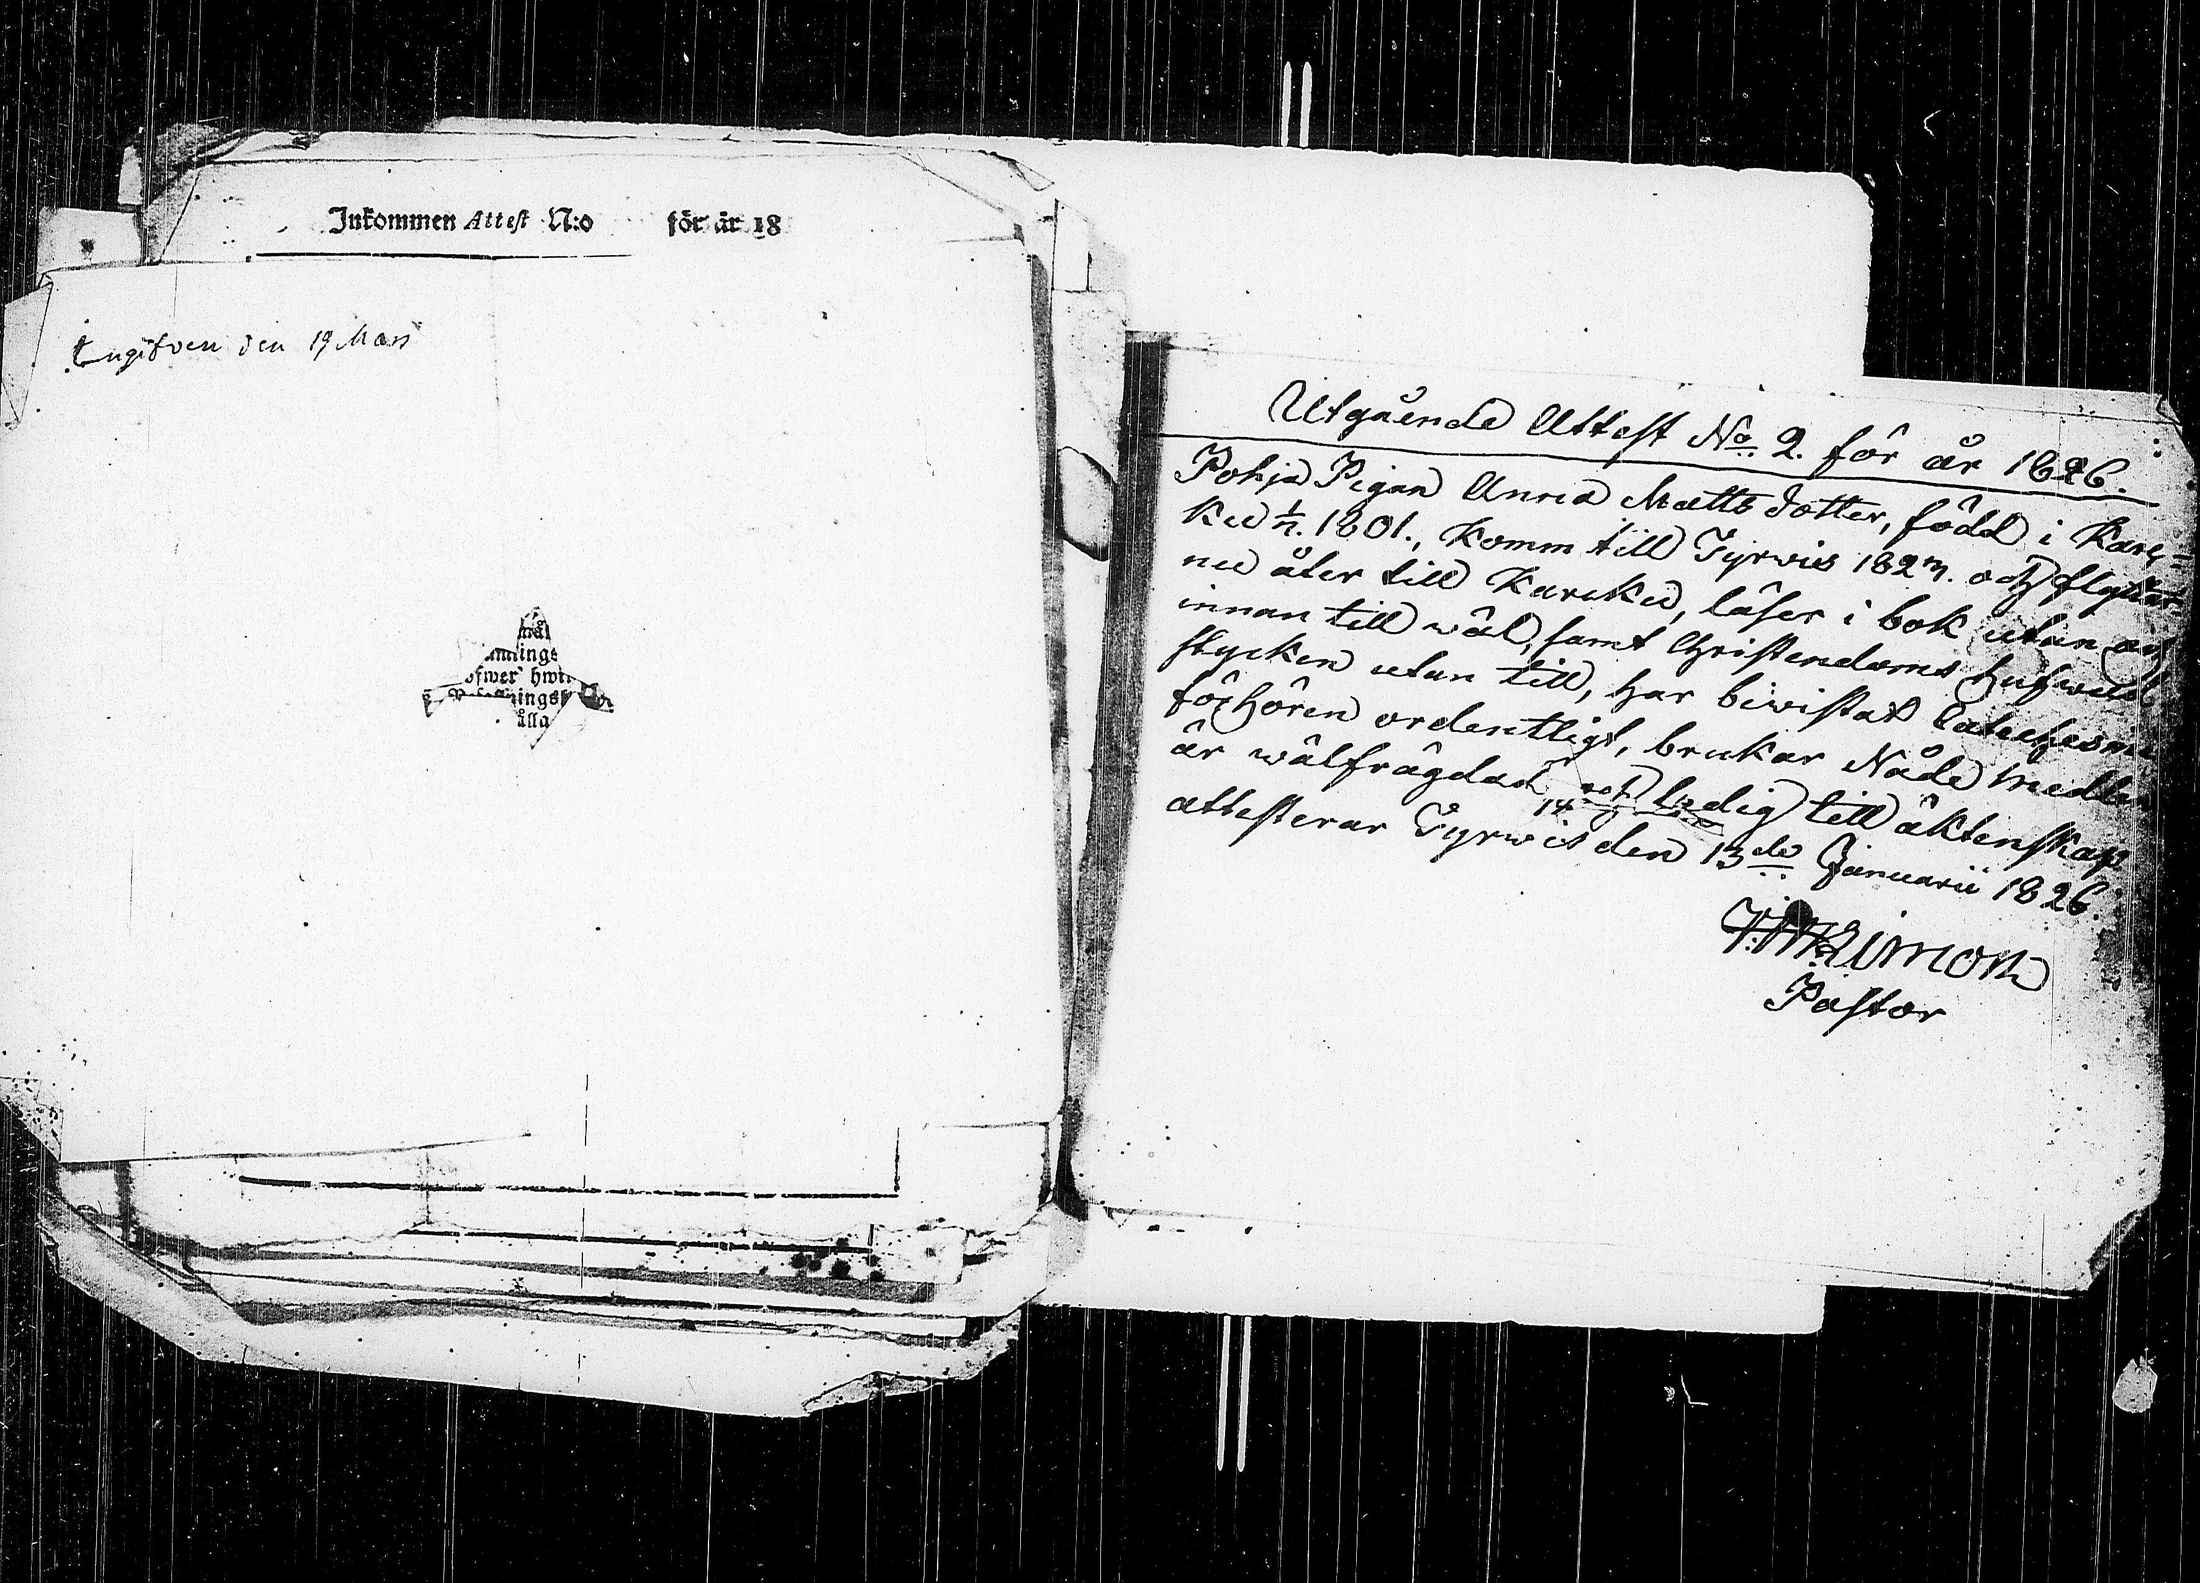 Inkommen Attest N:o för år 18
Ingifven den 19 Mars
mål
mlings
ofwer hwil
nings
ålla
Utgående Attest No. 2. för år 1826.
Pohja Pigan Anna Matts dotter, född i Kare-
ku 1/7. 1801., Komm till Tyrwis 1823. och flyttar
nu åter till Karcku, läser i bok utan och
innan till wäl, samt Christendoms hufwud
stycken utan till, har biwistat Catechesmi
förhören ordentligt, brukar Nåde Medlen
är wälfrägdad och ledig till äktenskap
attesterar Tyrwis den 13de Januarii 1826.
14
Pastor